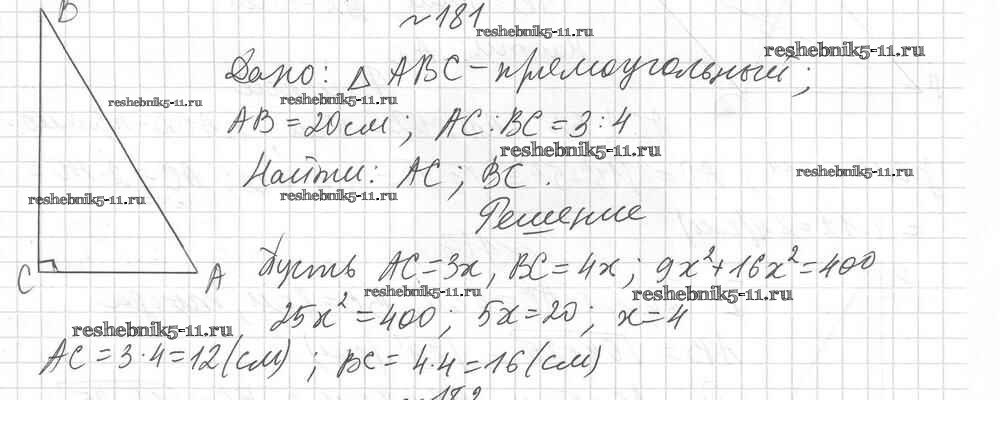 B
№181
reshebnik5-11.ru
reshebnik5-11.ru
Дано: △ ABC - прямоугольный;
reshebnik5-11.ru
reshebnik5-11.ru
AB = 20 см; AC:BC = 3:4
reshebnik5-11.ru
Найти: AC; BC.
reshebnik5-11.ru
reshebnik5-11.ru
reshebnik5-11.ru
Решение
C A
Пусть AC = 3x, BC = 4x; 9x²+16x²=400
reshebnik5-11.ru
reshebnik5-11.ru
25x² = 400; 5x=20; x=4
reshebnik5-11.ru
AC = 3·4=12(см); BC = 4·4=16(см)
№182